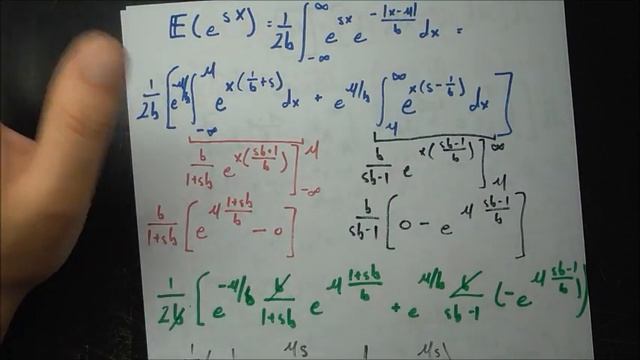 E(e^{sx}) = 1/2b ∫_{-∞}^{∞} e^{sx} e^{-|x-μ|/b} dx =
1/2b [e^{-μ/b} ∫_{-∞}^{μ} e^{x(1/b+s)} dx + e^{μ/b} ∫_{μ}^{∞} e^{x(s-1/b)} dx]
b/1+sb e^{x(sb+1/b)} ]_{-∞}^{μ} b/sb-1 e^{x(sb-1/b)} ]_{μ}^{∞}
b/1+sb [e^{μ 1+sb/b} - 0] b/sb-1 [0 - e^{μ sb-1/b}]
1/2b [e^{-μ/b} b/1+sb e^{μ 1+sb/b} + e^{μ/b} b/sb-1 (-e^{μ sb-1/b})